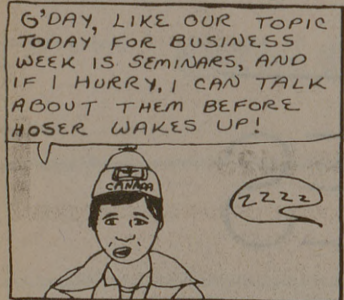 G'DAY, LIKE OUR TOPIC
TODAY FOR BUSINESS
WEEK IS SEMINARS, AND
IF I HURRY, I CAN TALK
ABOUT THEM BEFORE
HOSER WAKES UP!
CANADA
ZZZZ